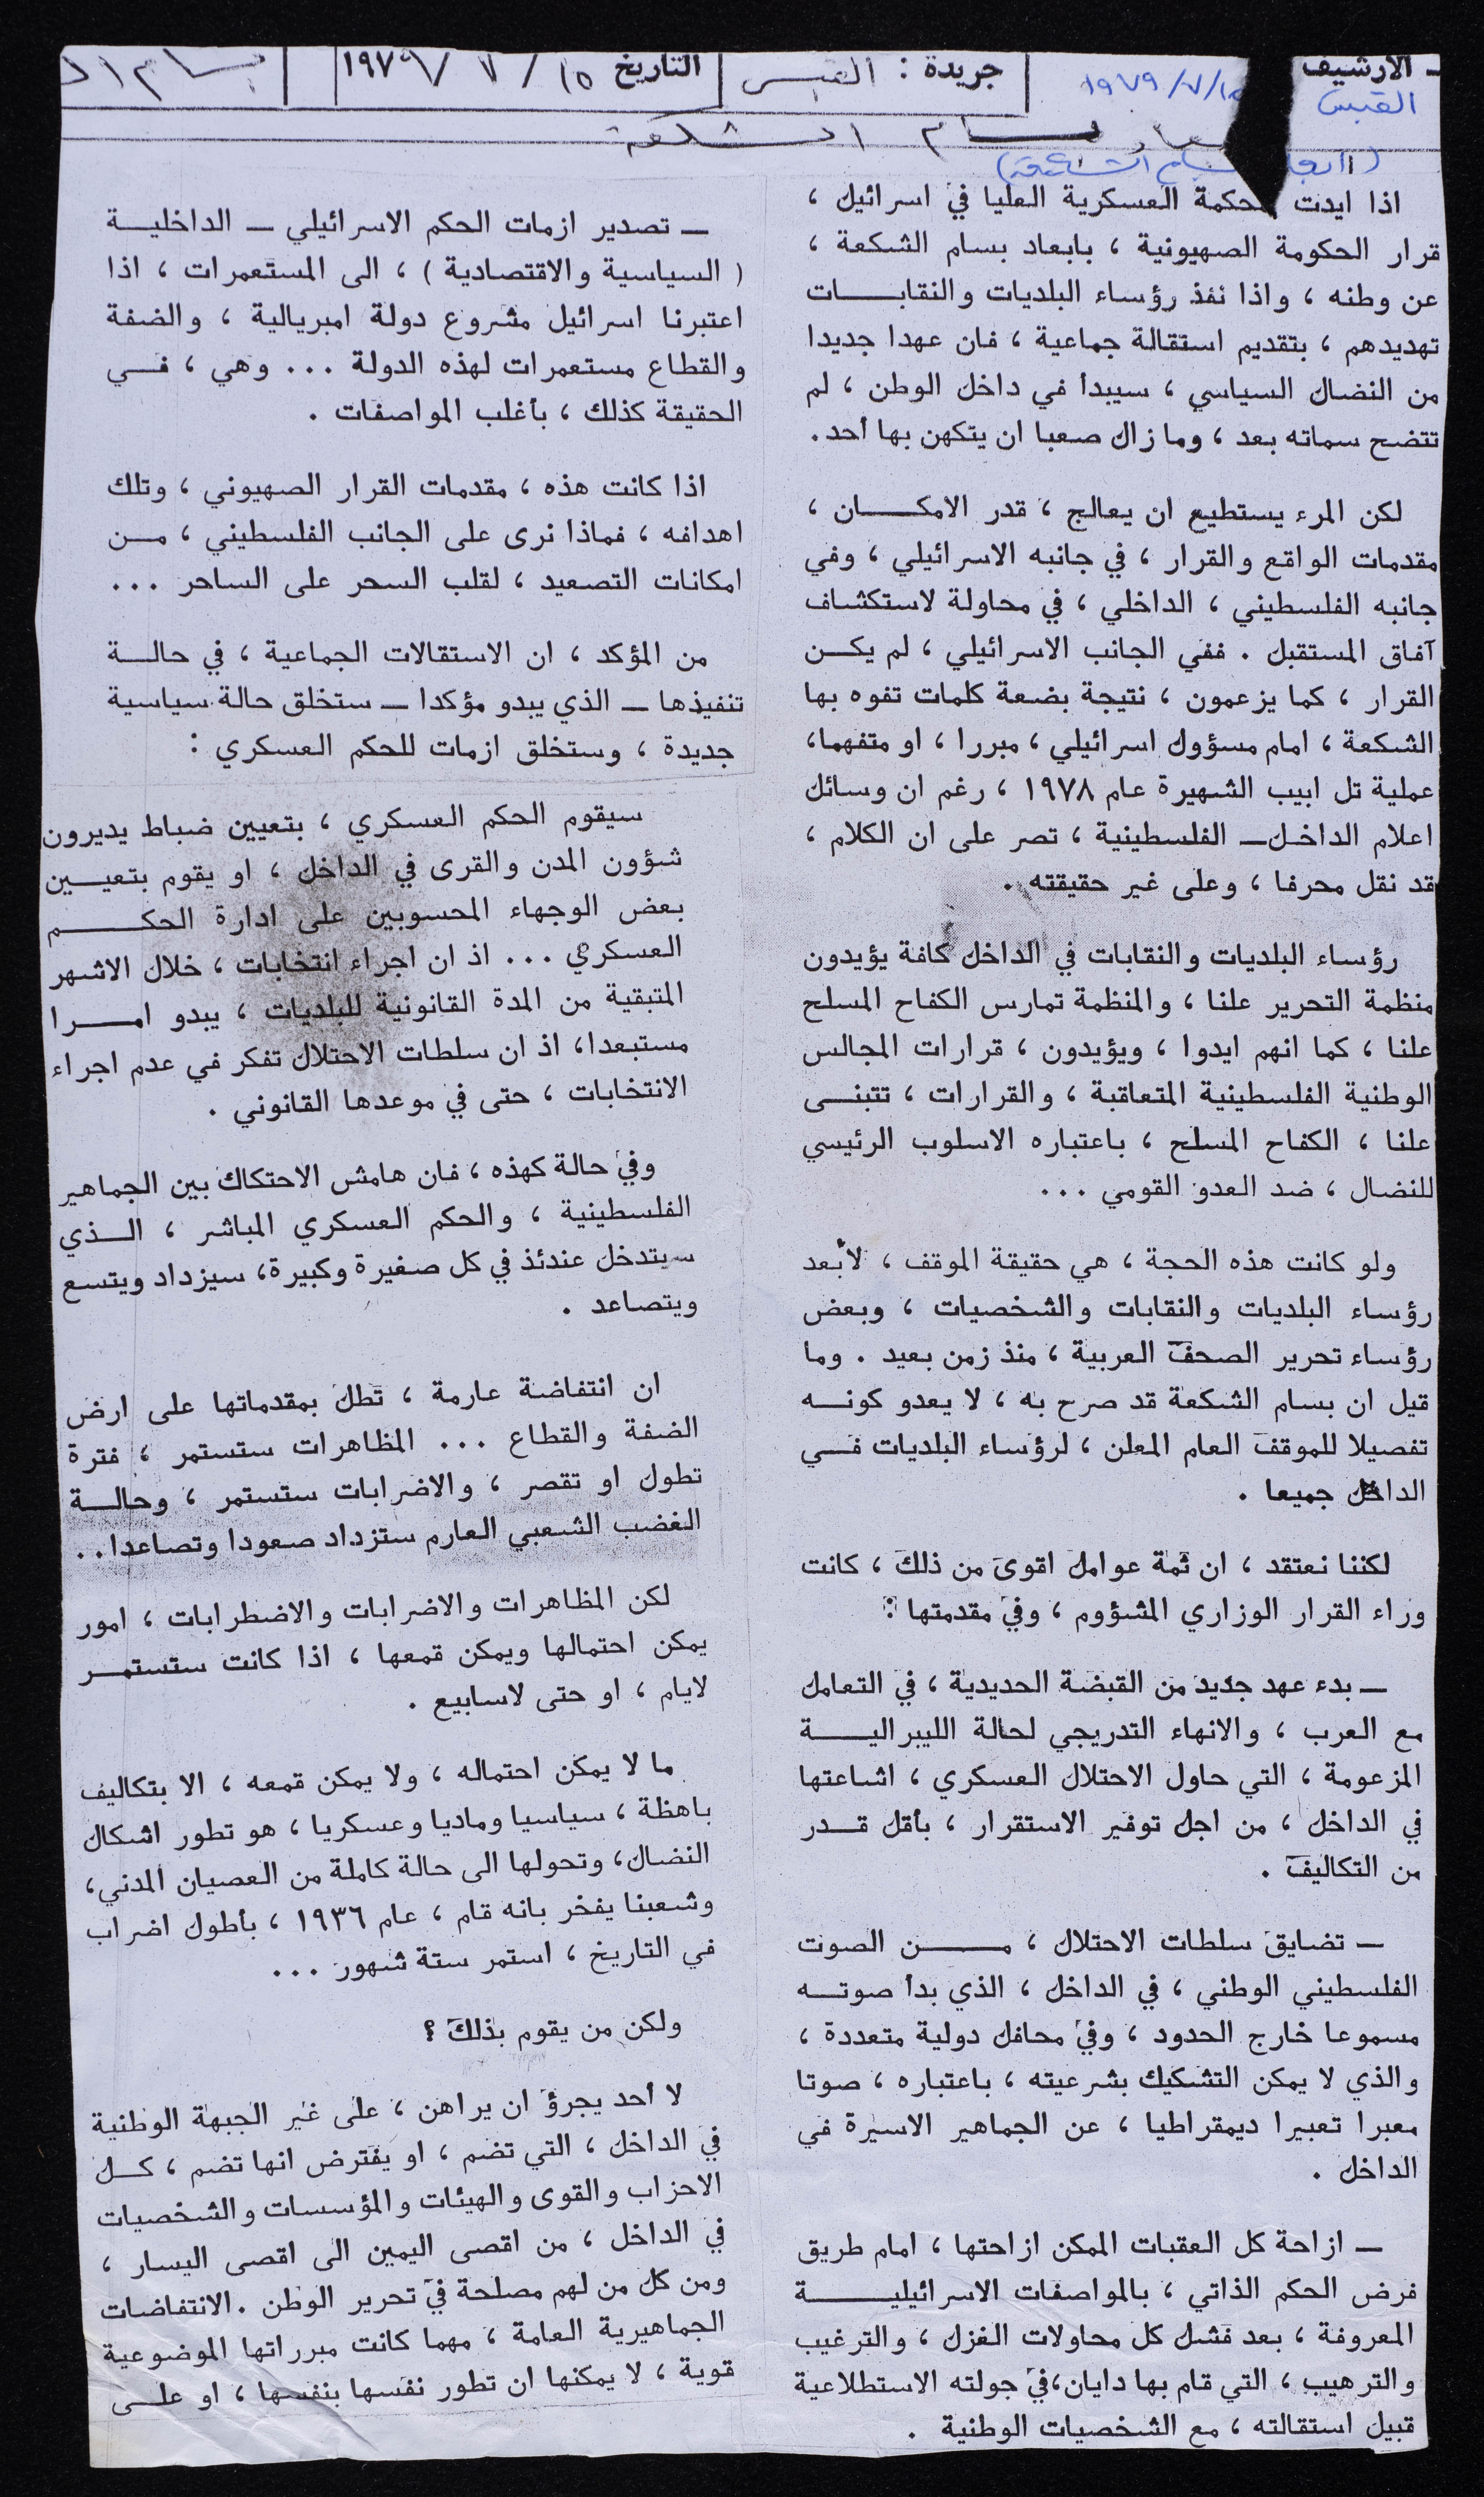 ـ الارشيف
القبس
١٩٧٩/٧/١٥
جريدة : القبس
التاريخ ١٥ / ٧ / ١٩٧٩
بسام ال
بسام الشكعة
بسام الشكعة)
اذا ايدت المحكمة العسكرية العليا في اسرائيل ،
قرار الحكومة الصهيونية ، بابعاد بسام الشكعة ،
عن وطنه ، واذا نفذ رؤساء البلديات والنقابات
تهديدهم ، بتقديم استقالة جماعية ، فان عهدا جديدا
من النضال السياسي ، سيبدأ في داخل الوطن ، لم
تتضح سماته بعد ، وما زال صعبا ان يتكهن بها أحد .
لكن المرء يستطيع ان يعالج ، قدر الامكان ،
مقدمات الواقع والقرار ، في جانبه الاسرائيلي ، وفي
جانبه الفلسطيني ، الداخلي ، في محاولة لاستكشاف
آفاق المستقبل . ففي الجانب الاسرائيلي ، لم يكن
القرار ، كما يزعمون ، نتيجة بضعة كلمات تفوه بها
الشكعة ، امام مسؤول اسرائيلي ، مبررا ، او متفهما ،
عملية تل ابيب الشهيرة عام ١٩٧٨ ، رغم ان وسائل
اعلام الداخل ـ الفلسطينية ، تصر على ان الكلام ،
قد نقل محرفا ، وعلى غير حقيقته .
رؤساء البلديات والنقابات في الداخل كافة يؤيدون
منظمة التحرير علنا ، والمنظمة تمارس الكفاح المسلح
علنا ، كما انهم ايدوا ، ويؤيدون ، قرارات المجالس
الوطنية الفلسطينية المتعاقبة ، والقرارات ، تتبنى
علنا ، الكفاح المسلح ، باعتباره الاسلوب الرئيسي
للنضال ، ضد العدو القومي ...
ولو كانت هذه الحجة ، هي حقيقة الموقف ، لأبعد
رؤساء البلديات والنقابات والشخصيات ، وبعض
رؤساء تحرير الصحف العربية ، منذ زمن بعيد . وما
قيل ان بسام الشكعة قد صرح به ، لا يعدو كونه
تفصيلا للموقف العام المعلن ، لرؤساء البلديات في
الداخل جميعا .
لكننا نعتقد ، ان ثمة عوامل اقوى من ذلك ، كانت
وراء القرار الوزاري المشؤوم ، وفي مقدمتها :
ـ بدء عهد جديد من القبضة الحديدية ، في التعامل
مع العرب ، والانهاء التدريجي لحالة الليبرالية
المزعومة ، التي حاول الاحتلال العسكري ، اشاعتها
في الداخل ، من اجل توفير الاستقرار ، بأقل قدر
من التكاليف .
ـ تضايق سلطات الاحتلال ، من الصوت
الفلسطيني الوطني ، في الداخل ، الذي بدأ صوته
مسموعا خارج الحدود ، وفي محافل دولية متعددة ،
والذي لا يمكن التشكيك بشرعيته ، باعتباره ، صوتا
معبرا تعبيرا ديمقراطيا ، عن الجماهير الاسيرة في
الداخل .
ـ ازاحة كل العقبات الممكن ازاحتها ، امام طريق
فرض الحكم الذاتي ، بالمواصفات الاسرائيلية
المعروفة ، بعد فشل كل محاولات الغزل ، والترغيب
والترهيب ، التي قام بها دايان ، في جولته الاستطلاعية
قبيل استقالته ، مع الشخصيات الوطنية .
ـ تصدير ازمات الحكم الاسرائيلي ـ الداخلية
( السياسية والاقتصادية ) ، الى المستعمرات ، اذا
اعتبرنا اسرائيل مشروع دولة امبريالية ، والضفة
والقطاع مستعمرات لهذه الدولة ... وهي ، في
الحقيقة كذلك ، بأغلب المواصفات .
اذا كانت هذه ، مقدمات القرار الصهيوني ، وتلك
اهدافه ، فماذا نرى على الجانب الفلسطيني ، من
امكانات التصعيد ، لقلب السحر على الساحر ...
من المؤكد ، ان الاستقالات الجماعية ، في حالة
تنفيذها ـ الذي يبدو مؤكدا ـ ستخلق حالة سياسية
جديدة ، وستخلق ازمات للحكم العسكري :
سيقوم الحكم العسكري ، بتعيين ضباط يديرون
شؤون المدن والقرى في الداخل ، او يقوم بتعيين
بعض الوجهاء المحسوبين على ادارة الحكم
العسكري ... اذ ان اجراء انتخابات ، خلال الاشهر
المتبقية من المدة القانونية للبلديات ، يبدو امرا
مستبعدا ، اذ ان سلطات الاحتلال تفكر في عدم اجراء
الانتخابات ، حتى في موعدها القانوني .
وفي حالة كهذه ، فان هامش الاحتكاك بين الجماهير
الفلسطينية ، والحكم العسكري المباشر ، الذي
سيتدخل عندئذ في كل صغيرة وكبيرة ، سيزداد ويتسع
ويتصاعد .
ان انتفاضة عارمة ، تطل بمقدماتها على ارض
الضفة والقطاع ... المظاهرات ستستمر ، فترة
تطول او تقصر ، والاضرابات ستستمر ، وحالة
الغضب الشعبي العارم ستزداد صعودا وتصاعدا ..
لكن المظاهرات والاضرابات والاضطرابات ، امور
يمكن احتمالها ويمكن قمعها ، اذا كانت ستستمر
لايام ، او حتى لاسابيع .
ما لا يمكن احتماله ، ولا يمكن قمعه ، الا بتكاليف
باهظة ، سياسيا وماديا وعسكريا ، هو تطور اشكال
النضال ، وتحولها الى حالة كاملة من العصيان المدني ،
وشعبنا يفخر بانه قام ، عام ١٩٣٦ ، بأطول اضراب
في التاريخ ، استمر ستة شهور ...
ولكن من يقوم بذلك ؟
لا أحد يجرؤ ان يراهن ، على غير الجبهة الوطنية
في الداخل ، التي تضم ، او يفترض انها تضم ، كل
الاحزاب والقوى والهيئات والمؤسسات والشخصيات
في الداخل ، من اقصى اليمين الى اقصى اليسار ،
ومن كل من لهم مصلحة في تحرير الوطن . الانتفاضات
الجماهيرية العامة ، مهما كانت مبرراتها الموضوعية
قوية ، لا يمكنها ان تطور نفسها بنفسها ، او على